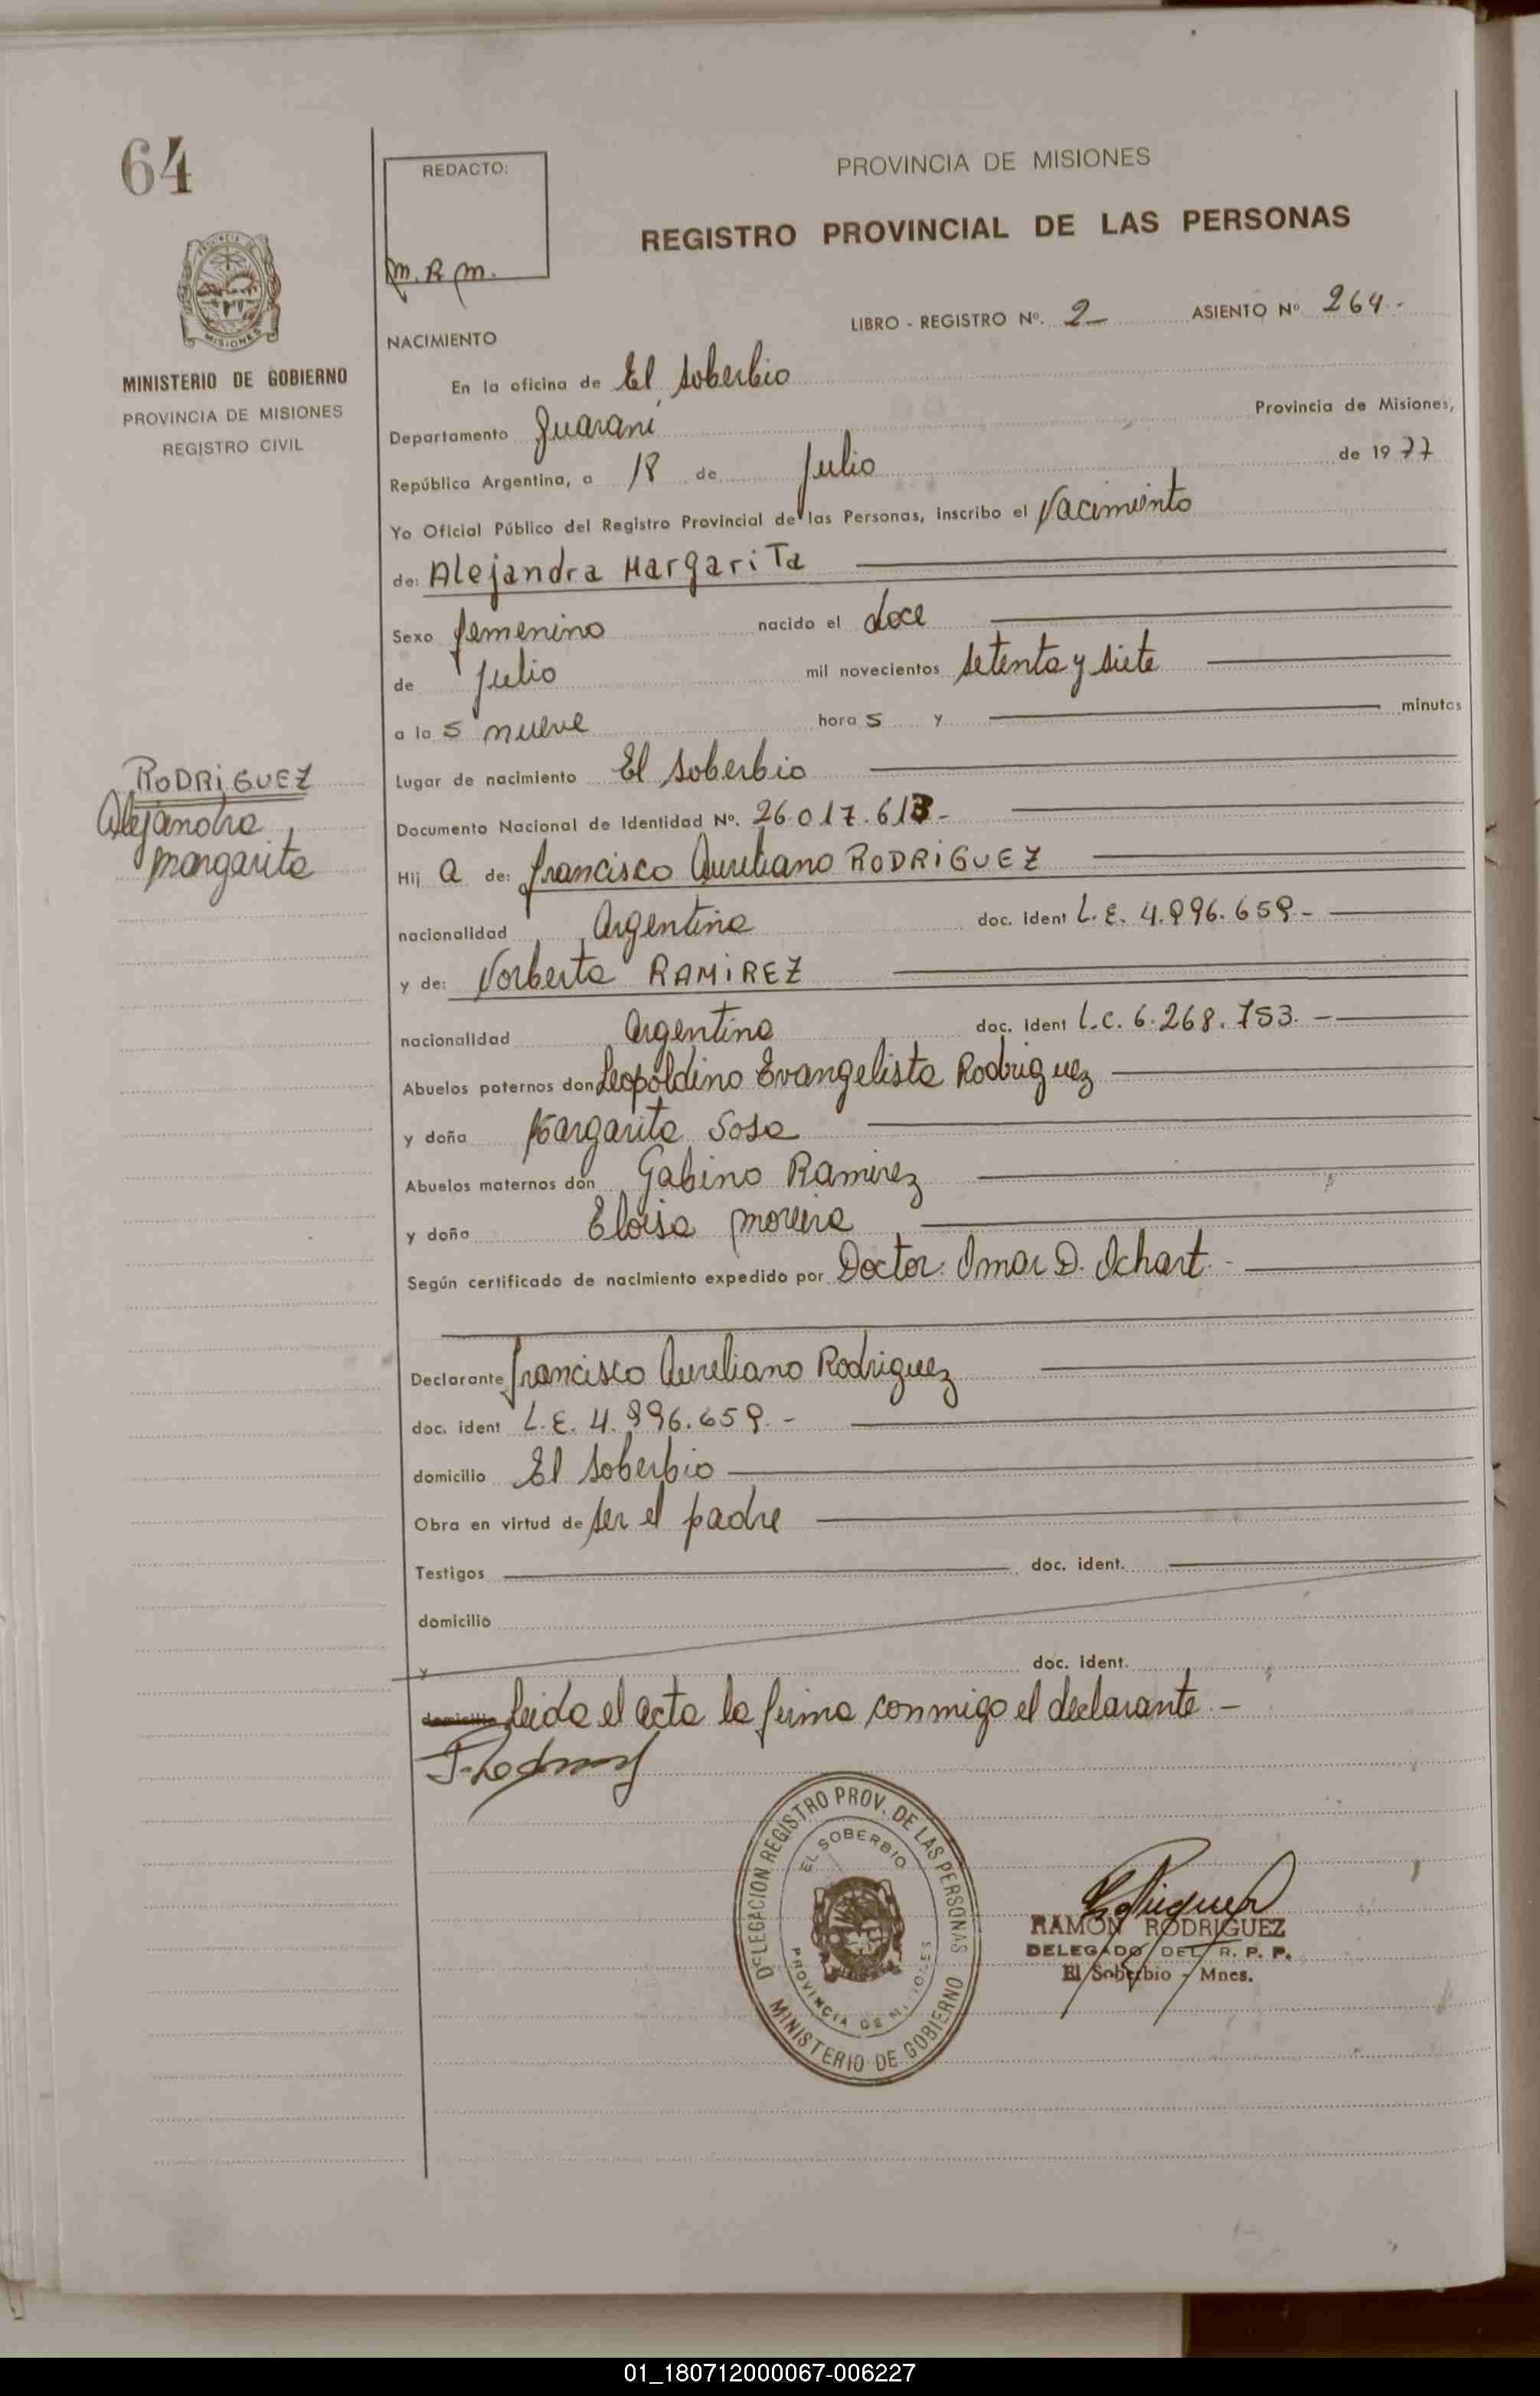 64
REDACTO:
M. R. M.
PROVINCIA DE MISIONES
REGISTRO PROVINCIAL DE LAS PERSONAS
PROVINCIA DE
MISIONES
MINISTERIO DE GOBIERNO
PROVINCIA DE MISIONES
REGISTRO CIVIL
LIBRO - REGISTRO Nº. 2 ASIENTO Nº 264.-
NACIMIENTO
En la oficina de El Soberbio
Departamento Guaraní Provincia de Misiones,
República Argentina, a 18 de Julio de 1977
Yo Oficial Público del Registro Provincial de las Personas, inscribo el Nacimiento
de: Alejandra Margarita
Sexo femenino nacido el doce
de Julio mil novecientos setenta y siete
a las nueve horas y minutos
Lugar de nacimiento El Soberbio
RODRIGUEZ
Alejandra
Margarita
Documento Nacional de Identidad Nº. 26.017.613-
Hija de: Francisco Aureliano RODRIGUEZ
nacionalidad Argentina doc. ident L.E. 4.996.659-
y de: Norberta RAMIREZ
nacionalidad Argentina doc. ident L.C. 6.268.753.-
Abuelos paternos don Leopoldino Evangelista Rodriguez
y doña Margarita Sosa
Abuelos maternos don Gabino Ramirez
y doña Eloisa Moreira
Según certificado de nacimiento expedido por Doctor: Omar D. Ochart.-
Declarante Francisco Aureliano Rodriguez
doc. ident L.E. 4.996.659.-
domicilio El Soberbio
Obra en virtud de ser el padre
Testigos doc. ident.
domicilio
y doc. ident.
domicilio leida el acta la firma conmigo el declarante.-
DELEGACION REGISTRO PROV. DE LAS PERSONAS
EL SOBERBIO
PROVINCIA DE MISIONES
MINISTERIO DE GOBIERNO
RAMON RODRIGUEZ
DELEGADO DEL R. P. P.
El Soberbio - Mnes.
01_180712000067-006227